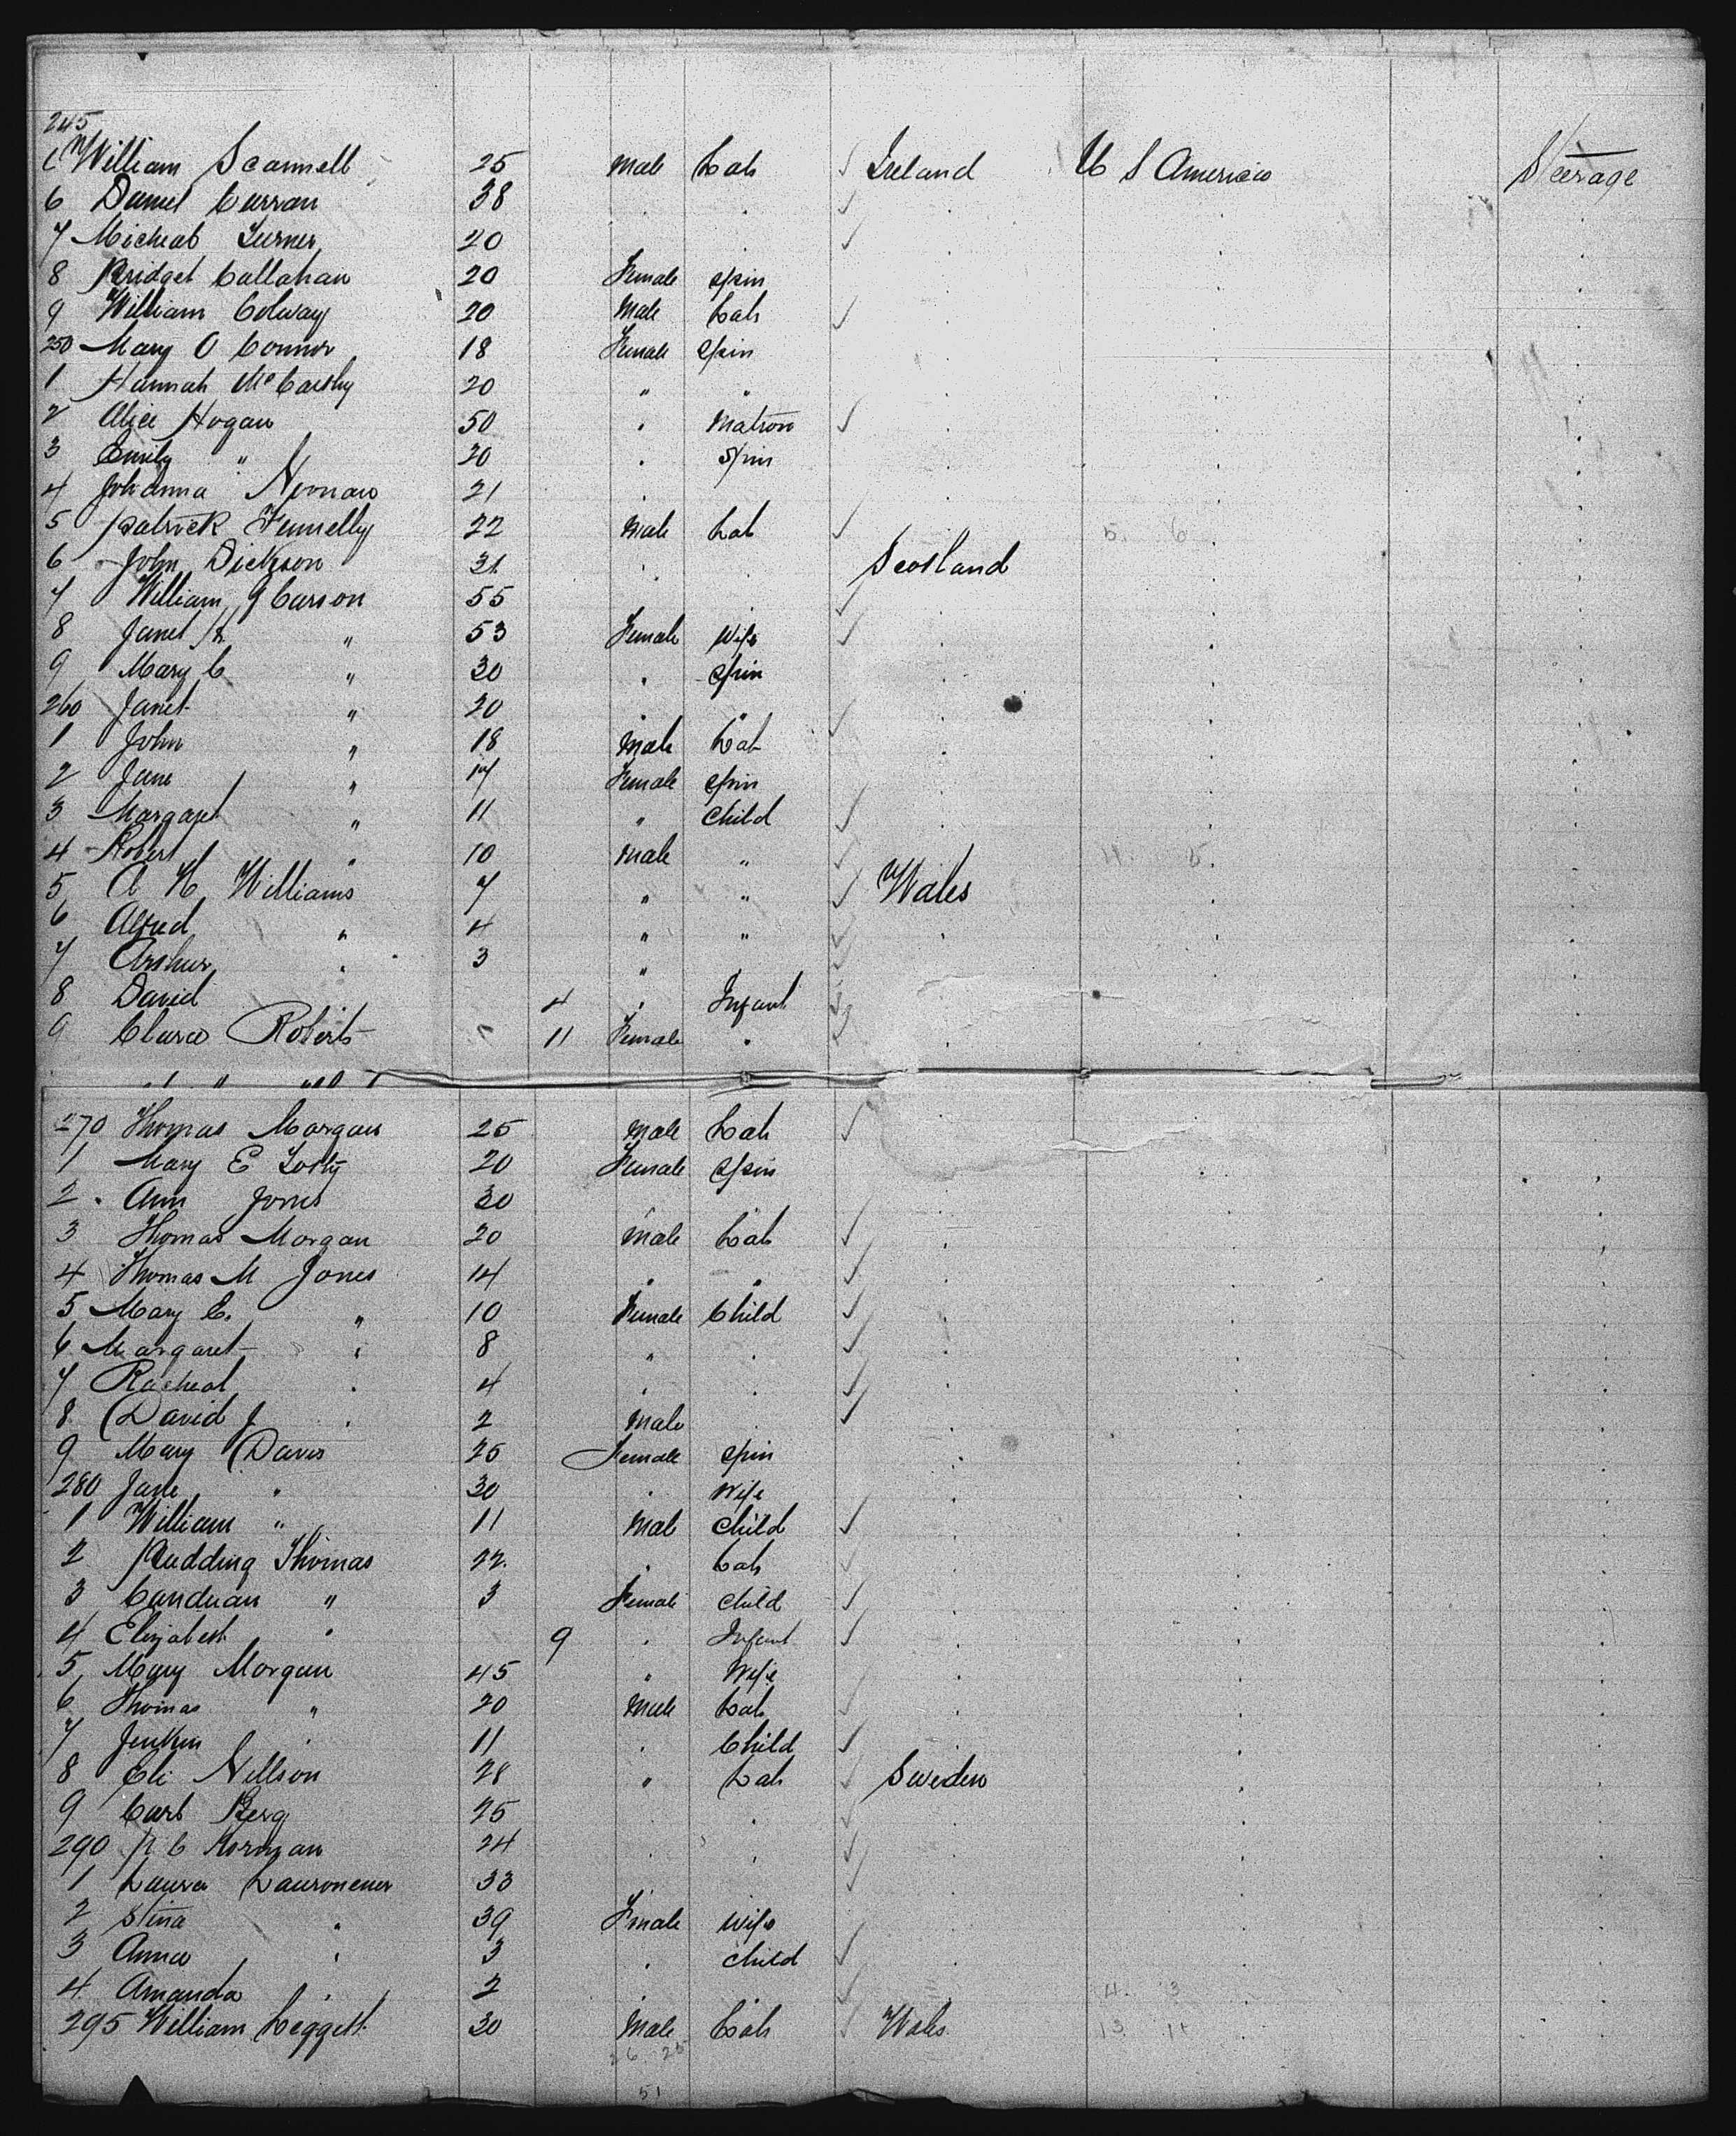 245
William Scannell 25 Male Lab Ireland U S America Steerage
6 Daniel Curran 38
7 Micheal Turner 20
8 Bridget Callahan 20 Female Spin
9 William Colway 20 Male Lab
250 Mary O Connor 18 Female Spin
1 Hannah McCarthy 20 " "
2 Alice Hogan 50 Matron
3 Emily " 20 Spin
4 Johanna 21
5 Patrick Fennelly 22 Male Lab 5. 6
6 John Dickson 31 Scotland
7 William J Carson 55
8 Janet " 53 Female Wife
9 Mary C " 30 Spin
260 Janet " 20 "
1 John " 18 Male Lab
2 Jane " 17 Female Spin
3 Margaret " 11 " Child
4 Robert 10 Male "
5 A H Williams 7 " " Wales
6 Alfred " 4 " "
7 Arthur 3 "
8 David 4 Infant
9 Clara Roberts 11 Female
270 Thomas Morgan 25 Male Lab
1 Mary E 20 Female Spin
2 Ann Jones 30
3 Thomas Morgan 20 Male Lab
4 Thomas M Jones 14
5 Mary E. " 10 Female Child
6 Margaret 8 "
7 Racheal 4
8 David J 2 Male
9 Mary Davis 25 Female Spin
280 Jane " 30 Wife
1 William " 11 Male Child
2 Rudding Thomas 22 Lab
3 " 3 Female Child
4 Elizabeth 9 Infant
5 Mary Morgan 45 " Wife
6 Thomas " 20 Male Lab
7 Jenkin 11 Child
8 Eli Nellson 28 " Lab Sweden
9 Carl Berg 25
290 24
1 Laura 33
2 Stina 39 Female Wife
3 Anna 3 Child
4 Amanda 2
295 William Leggett 30 Male Lab Wales
26 25
51